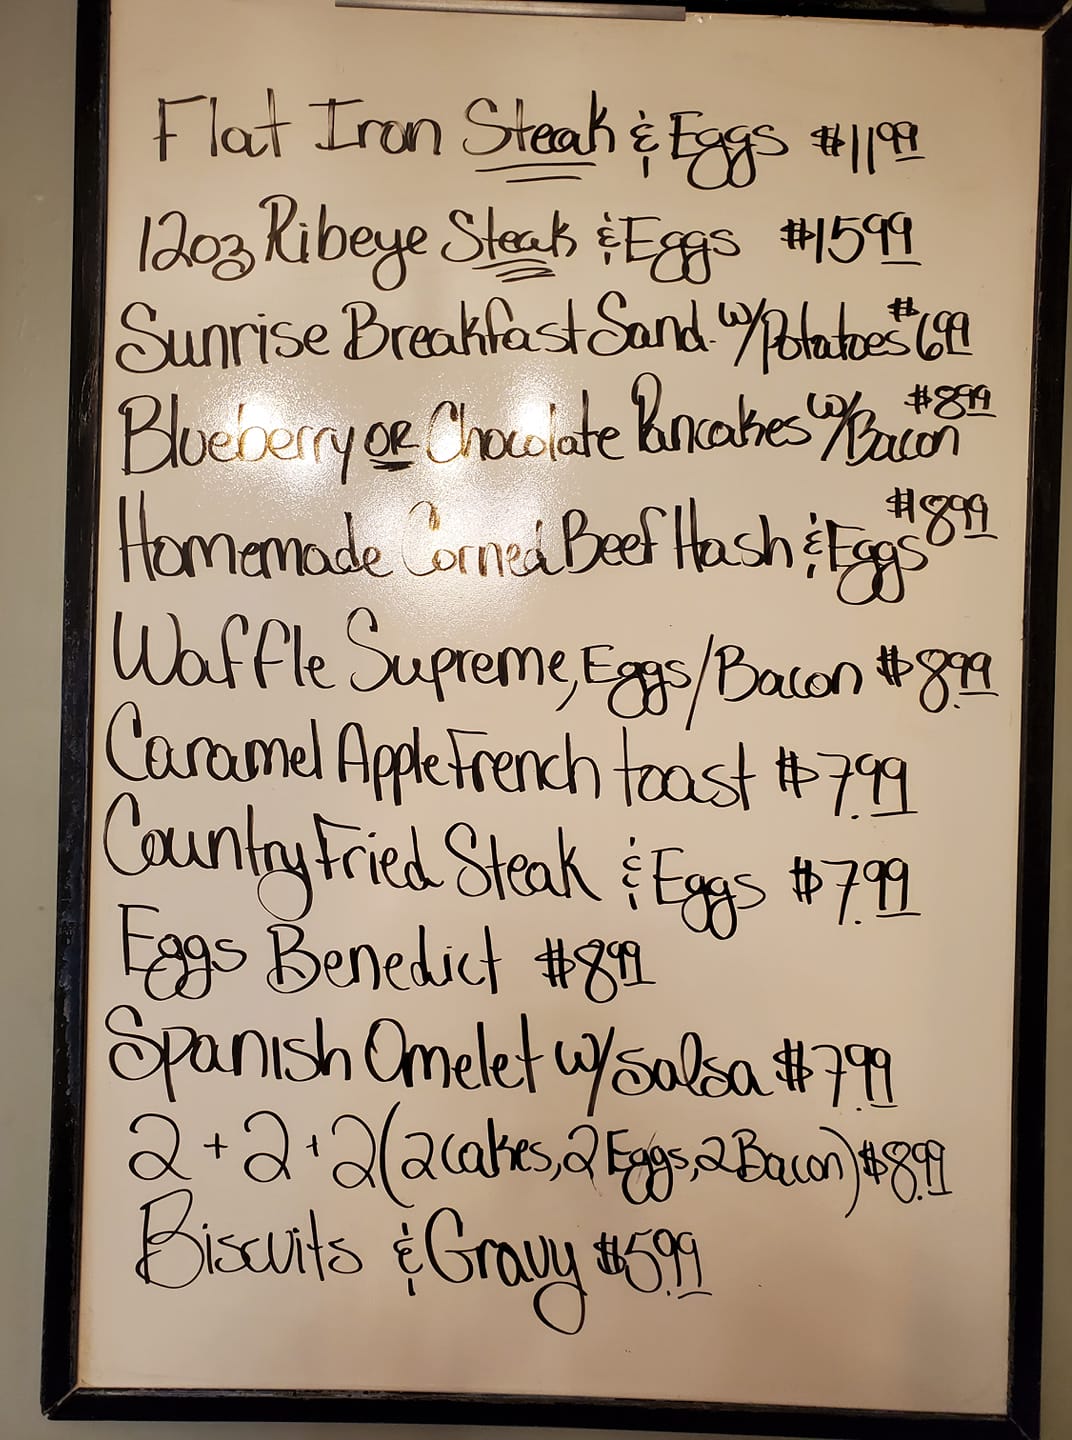 Flat Iron Steak & Eggs $11.99
12oz Ribeye Steak & Eggs $15.99
Sunrise Breakfast Sand. w/Potatoes $6.99
Blueberry OR Chocolate Pancakes w/Bacon $8.99
Homemade Corned Beef Hash & Eggs $8.99
Waffle Supreme, Eggs/Bacon $8.99
Caramel Apple French toast $7.99
Country Fried Steak & Eggs $7.99
Eggs Benedict $8.99
Spanish Omelet w/salsa $7.99
2 + 2 + 2 (2 cakes, 2 Eggs, 2 Bacon) $8.99
Biscuits & Gravy $5.99